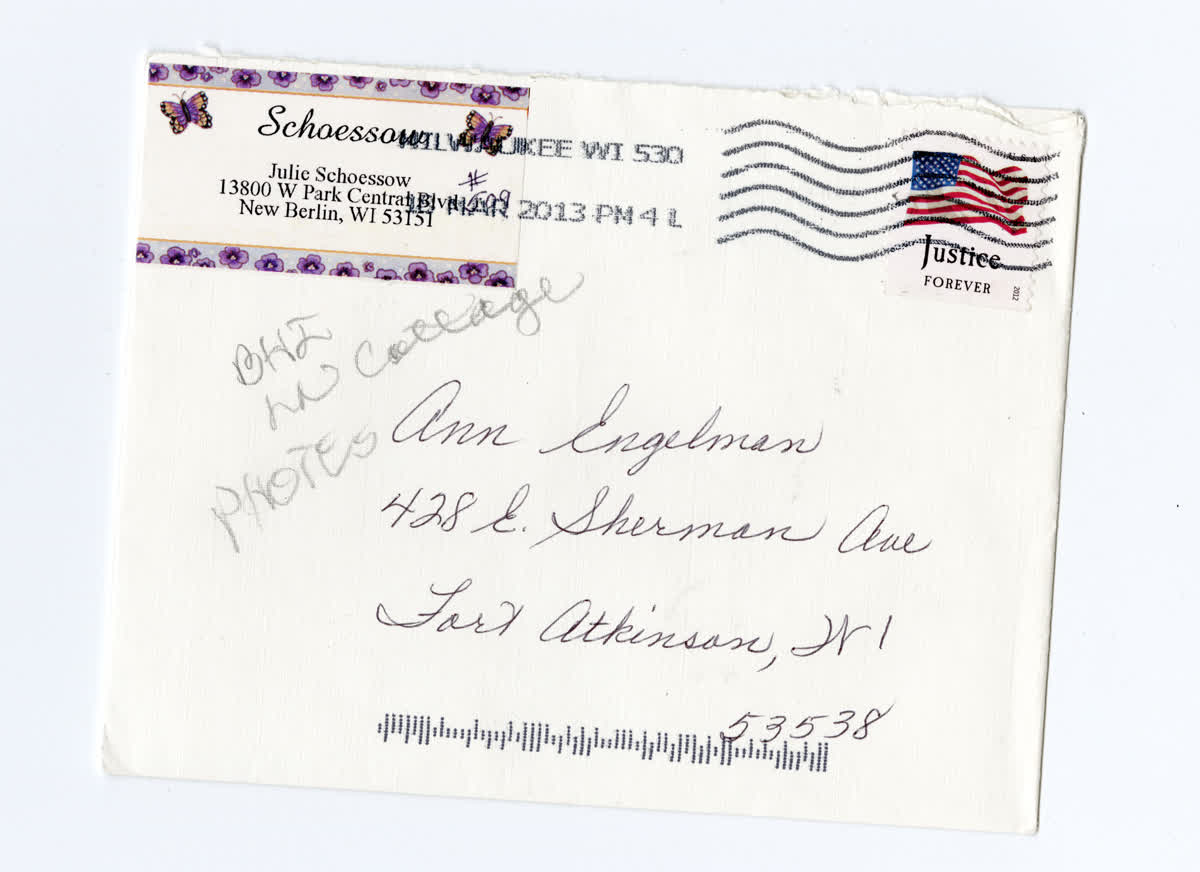 Schoessow
Julie Schoessow
13800 W Park Central Blvd. #509
New Berlin, WI 53151
MILWAUKEE WI 530
MAR 2013 PM 4 L
Justice
FOREVER
2012
BHI
LN Cottage
PHOTES
Ann Engelman
428 E. Sherman Ave
Fort Atkinson, WI
53538